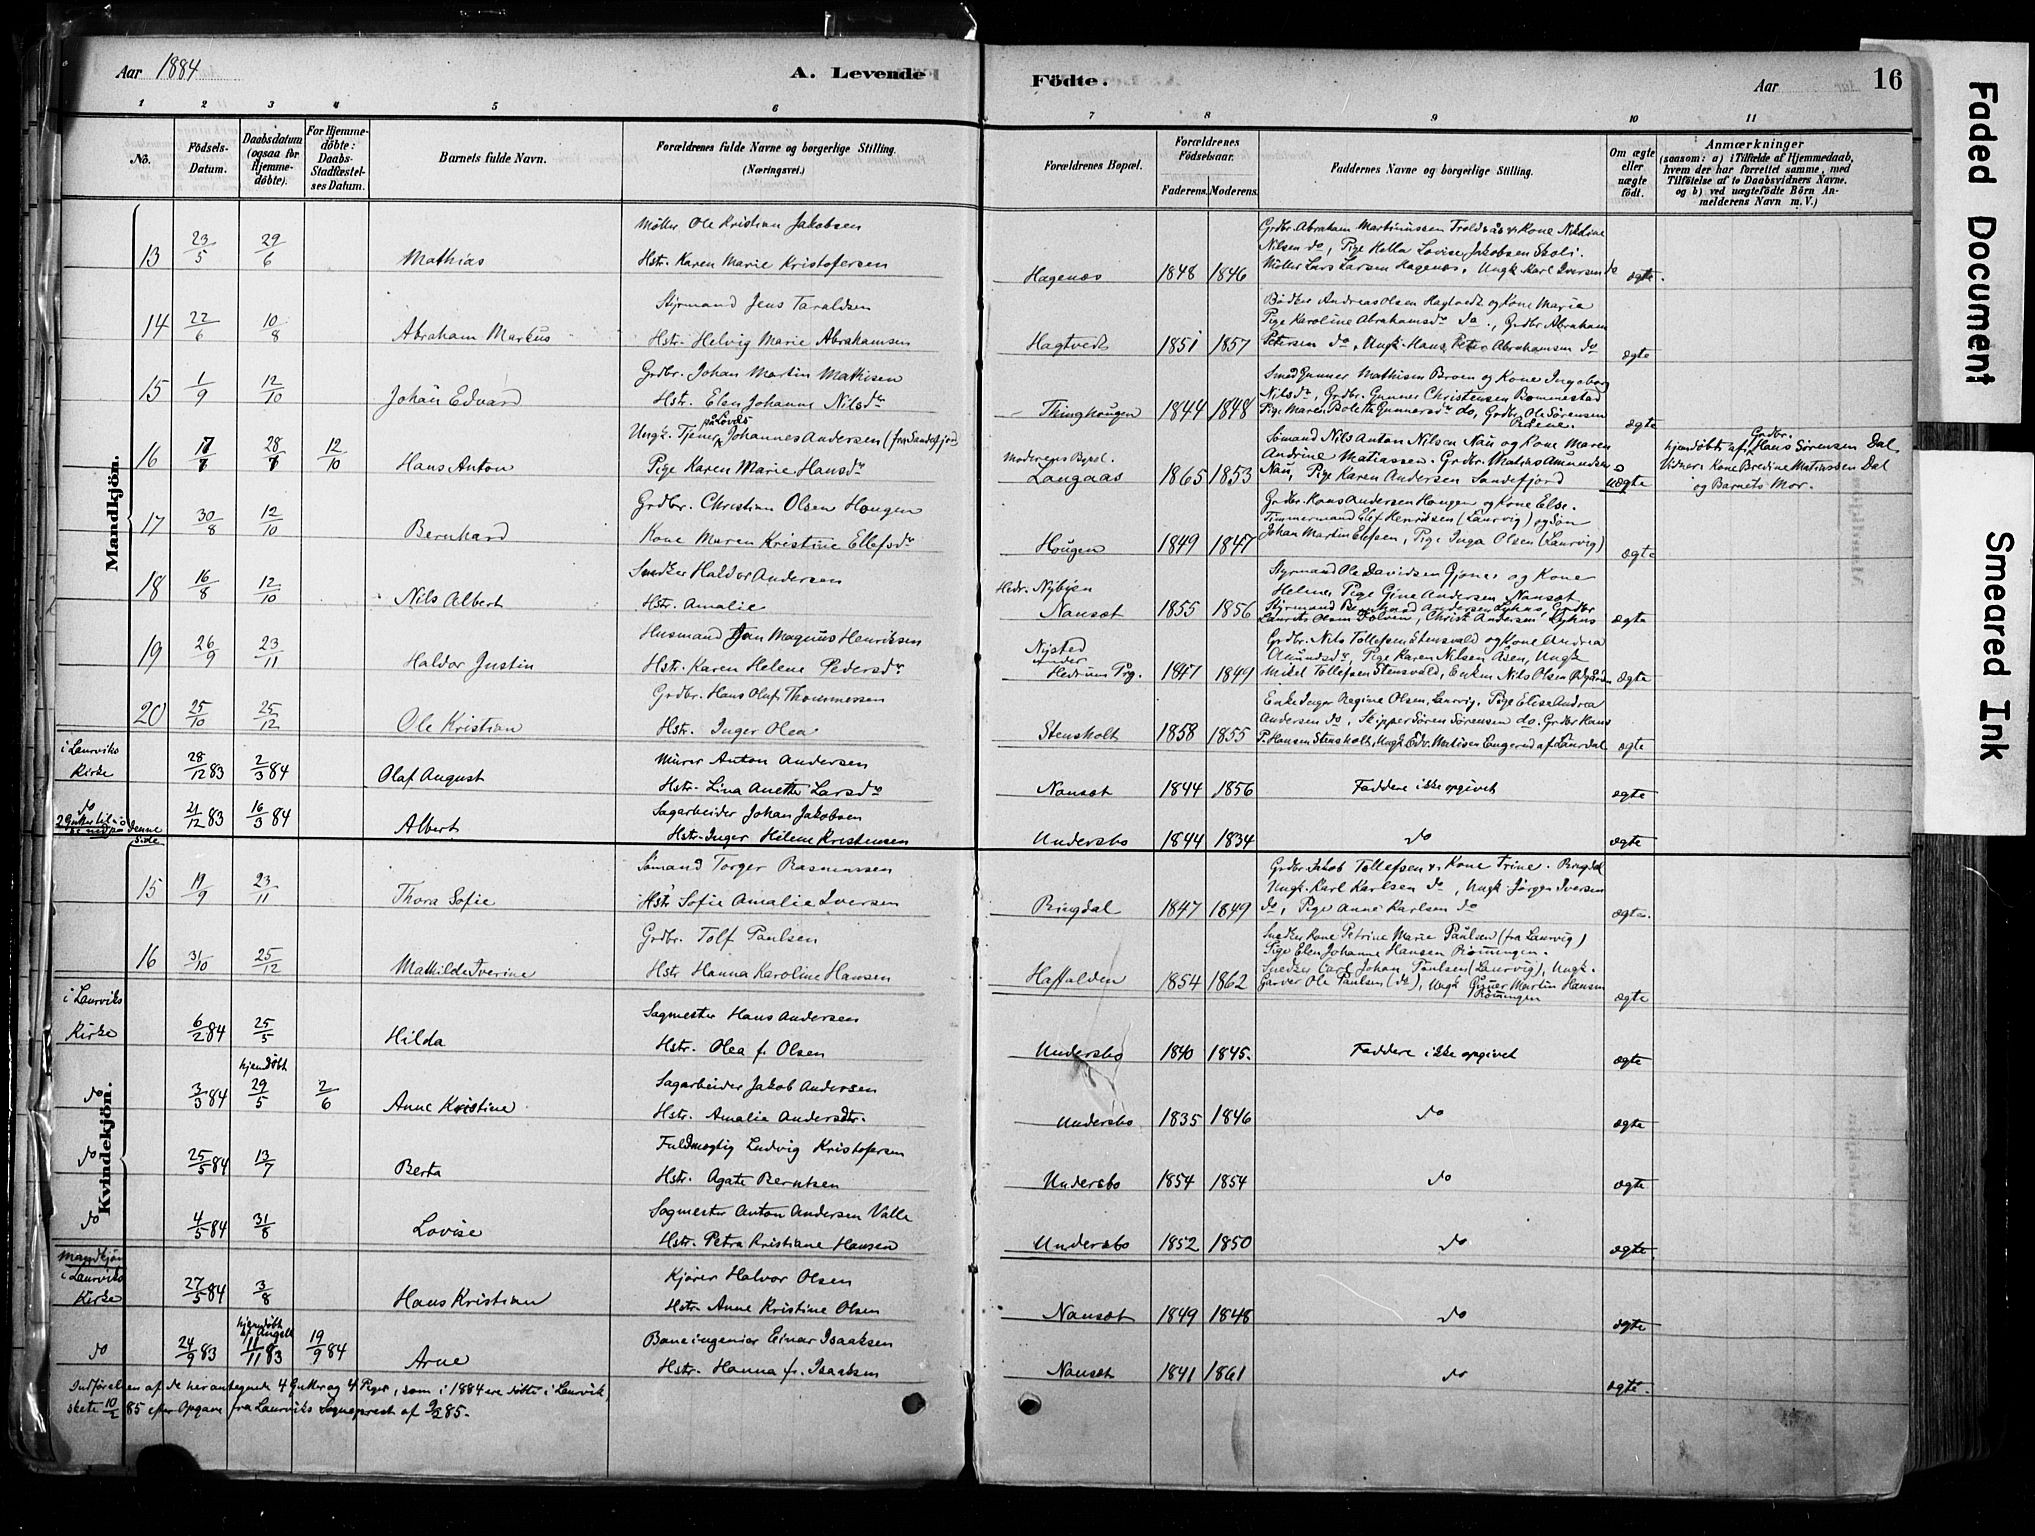 Aar 1884
A. Levende
Födte.
Aar
16
1 2 3 4 5 6 7 8 9 10 11
No.
Födsels-Datum.
Daabsdatum (ogsaa for Hjemme-döbte).
For Hjemme-döbte: Daabs-Stadfæstel-ses Datum.
Barnets fulde Navn.
Forældrenes fulde Navne og borgerlige Stilling.
(Næringsvei.)
Forældrenes Bopæl.
Forældrenes Födselsaar.
Faderens. Moderens.
Faddernes Navne og borgerlige Stilling.
Om ægte eller uægte födt.
Anmærkninger
(saasom: a) i Tilfælde af Hjemmedaab,
hvem der har forrettet samme, med
Tilföielse af to Daabsvidners Navne.
og b) ved uægtefödte Börn An-
melderens Navn m. V.)
Mandkjön.
13 23/5 29/6 Mathias
Møller Ole Kristian Jakobsen
Hstr. Karen Marie Kristofersen
Hagenæs 1848 1846
Grdbr. Abraham Martinussen Troldsås & Kone Nikoline
Nilsen do, Pige Hella Lovise Jakobsen Skoli
Møller Lars Larsen Hagenæs, Ungk. Karl Iversen do
ægte.
14 22/6 10/8 Abraham Markus
Styrmand Jens Taraldsen
Hstr. Helvig Marie Abrahamsen
Hagtvedt 1851 1857
Bødker Andreas Olsen Hagtvedt og Kone Maria
Pige Karoline Abrahamsdr do., Grdbr Abraham
Petersen do, Ungk. Hans Peter Abrahamsen do
ægte
15 1/9 12/10 Johan Edvard
Grdbr. Johan Martin Mathisen
Hstr. Elen Johanne Nilsdr
Thinghougen 1844 1848
Smed Gunner Mathisen Broen og Kone Ingeborg
Nilsdr, Grdbr. Gunner Christensen Bommestad
Pige Maren Bolette Gunnersdr do, Grdbr Ole Sörensen
ægte
16 17/7 28/7 12/10 Hans Anton
Ungk. Tjener på Lovds Johannes Andersen (fra Sandefjord
Pige Karen Marie Hansdr
Moderens Bopæl.
Langaas 1865 1853
Sømand Nils Anton Nilsen Nau og Kone Maren
Andrine Matiassen. Grdbr. Mathias Amundsen
Nau, Pige Karen Andersen Sandefjord
uægte
Grdbr.
hjemdøbt af Hans Sørensen Dal,
Vidner: Kone Bredine Matiassen Dal
og Barnets Mor.
17 30/8 12/10 Bernhard
Grdbr. Christian Olsen Hougen
Kone Maren Kristine Ellefsdr
Hougen 1849 1847
Grdbr. Hans Andersen Hougen og Kone Else.
Timmermand Elef Henriksen (Laurvig) og Søn
Johan Martin Elefsen, Pige Inga Olsen (Laurvig)
ægte
18 16/8 12/10 Nils Albert
Snedker Haldor Andersen
Hstr. Amalie
Hedr. Nybyen
Nansæt 1855 1856
Styrmand Ole Davidsen Gjønes og Kone
Helene, Pige Gine Andersen Nansæt
Styrmand Bernhard Andersen Lyhus, Grdbr
Laurits Olsen Dolven, Christ. Andersen Lyhus
ægte
19 26/9 23/11 Haldor Justin
Husmand Jan Magnus Henriksen
Hstr. Karen Helene Pedersdr
Nysted
under
Hedrum Prg. 1847 1849
Grdbr. Nils Tollefsen Stensvald og Kone Andrea
Amundsdr, Pige Karen Nilsen Åsen, Ungk
Mikel Tollefsen Stensvald, Enkem Nils Olsen
ægte
20 25/10 25/12 Ole Kristian
Grdbr. Hans Oluf Thommesen
Hstr. Inger Olea
Stensholt 1858 1855
Enke Inger Regine Olsen, Laurvig, Pige Elise Andrea
Andersen do, Skipper Sören Sörensen do. Grdbr Hans
P. Hansen Stensholt, Ungk Edv. Matisen Engerud af Laurdal
ægte
i Laurviks
Kirke 28/12 83 2/3 84 Olaf August
Murer Anton Andersen
Hstr. Lina Anette Larsdr
Nansæt 1844 1856 Faddere ikke opgivet ægte
do 21/12 83 16/3 84 Albert
Sagarbeider Johan Jakobsen
Hstr. Inger Helene Kristensen
Undersbo 1844 1834 do ægte
2 Gutter til
se ned på denne
side
Kvindekjön.
15 19/9 23/11 Thora Sofie
Sømand Torger Rasmussen
Hstr Sofie Amalie Iversen
Bingdal 1847 1849
Grdbr. Jakob Tollefsen & Kone Trine. Bingdal
Ungk. Karl Karlsen do, Ungk. Jørgen Iversen
do, Pige Anne Karlsen do
ægte.
16 31/10 25/12 Mathilde Iverine
Grdbr. Tolf Paulsen
Hstr Hanna Karoline Hansen
Haffalden 1854 1862
Snedker Kone Petrine Marie Paulsen (fra Laurvig)
Pige Elen Johanne Hansen Rönningen.
Snedker Carl Johan Paulsen (Laurvig), Ungk.
Garver Ole Paulsen (do), Ungk Gunner Martin Hansen
Rönningen
ægte
i Laurviks
Kirke 6/2 84 25/5 Hilda
Sagmester Hans Andersen
Hstr. Olea f. Olsen
Undersbo 1840 1845. Faddere ikke opgivet ægte
do 3/3 84 hjemdøbt 29/5 2/6 Anne Kristine
Sagarbeider Jakob Andersen
Hstr. Amalie Andersdtr.
Undersbo 1835 1846 do ægte
do 25/5 84 13/7 Berta
Fuldmægtig Ludvig Kristofersen
Hstr. Agate Berntsen
Undersbo 1854 1854 do ægte
do 4/5 84 31/8 Lovise
Sagmester Anton Andersen Valle
Hstr. Petra Kristiane Hansen
Undersbo 1852 1850 do ægte
Mandkjön
i Laurviks
Kirke 27/5 84 3/8 Hans Kristian
Kjører Halvor Olsen
Hstr. Anne Kristine Olsen
Nansæt 1849 1848 do ægte
do 24/9 83 hjemdøbt af Angell 11/11 83 19/9 84 Arne
Baneingeniør Einar Isaaksen
Hstr. Hanna f. Isaaksen
Nansæt 1841 1861 do ægte.
Indførelsen af de her antegnede 4 Gutter og 4 Piger, som i 1884 ere døbte i Laurvik,
skete 10/2 85 efter Opgave fra Laurviks Sogneprest af 9/2 85.
Faded Document
Smeared Ink